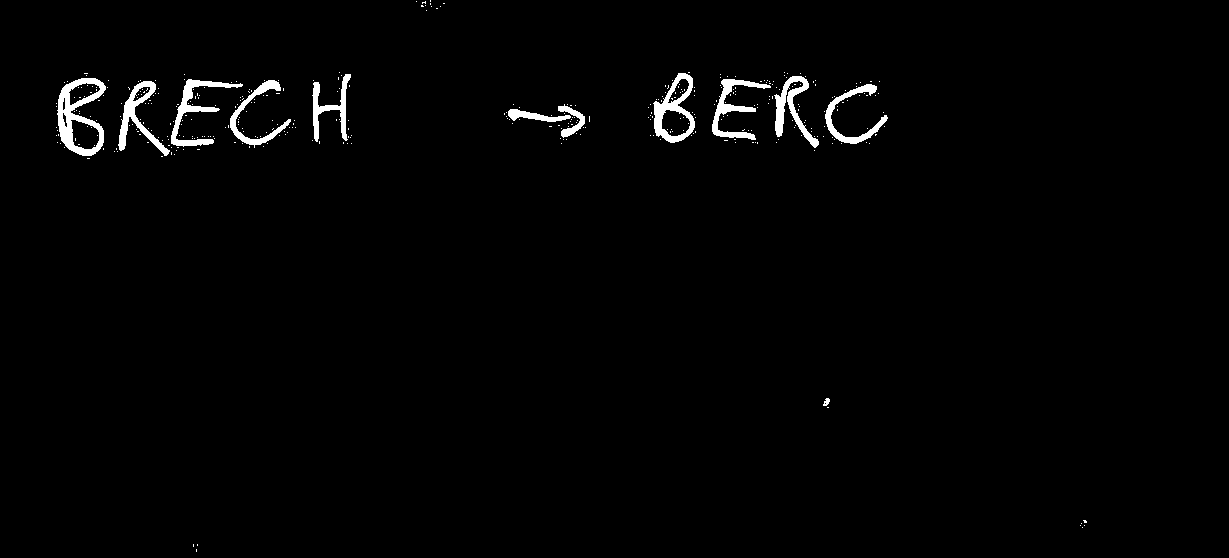 BRECH → BERC